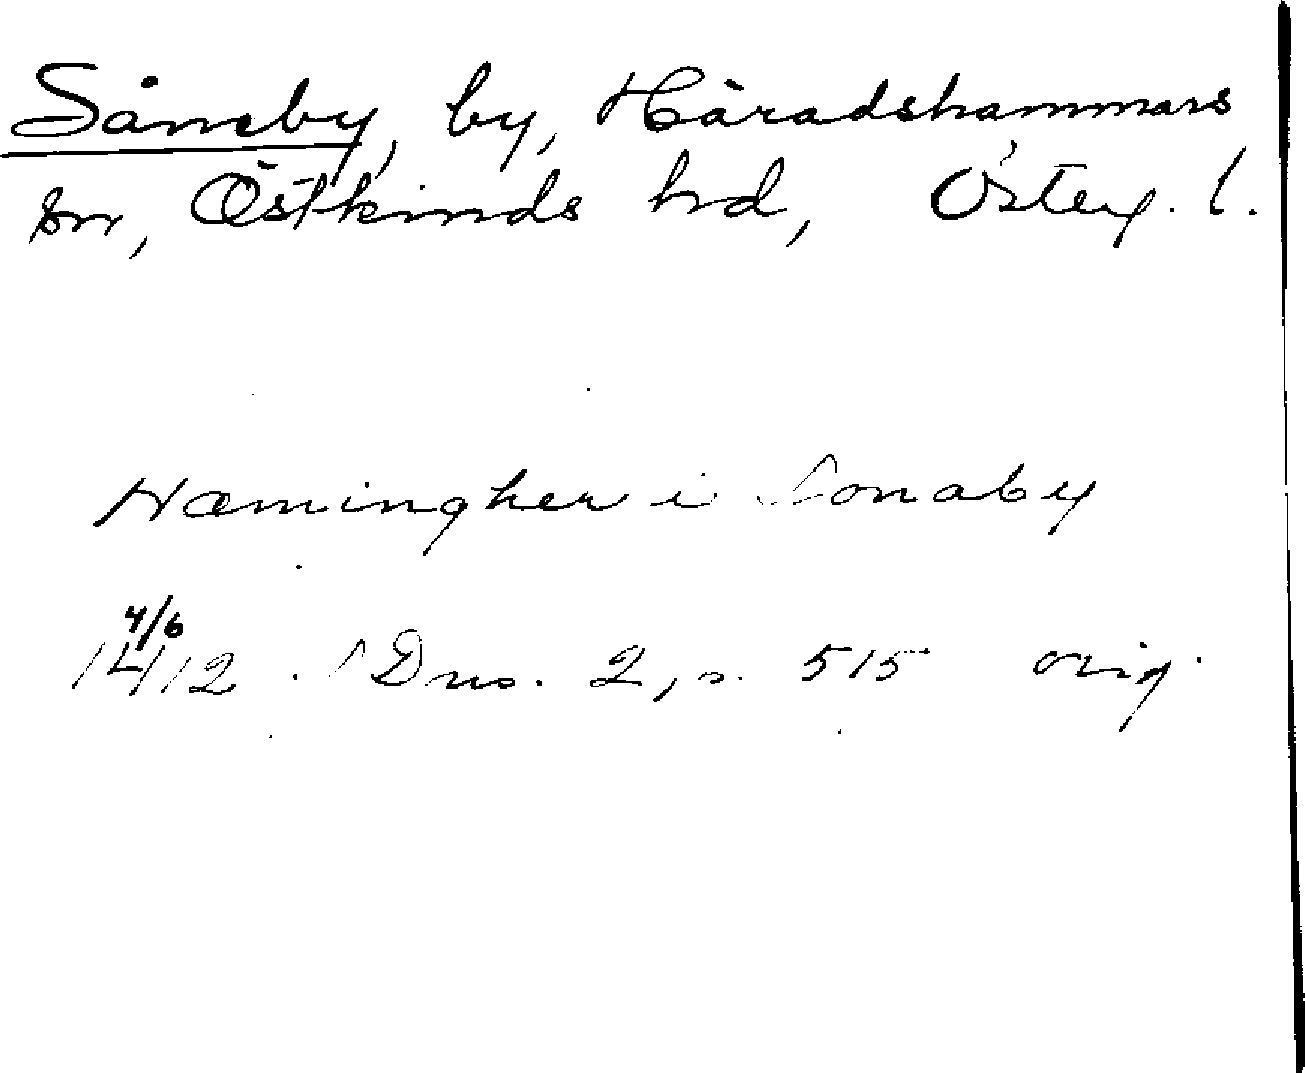 Såneby, by, Häradshammars
sn, Östkinds hd, Österg. l.
Hæmingher i Sonaby
4/6
1412. SDns. 2, s. 515 orig.